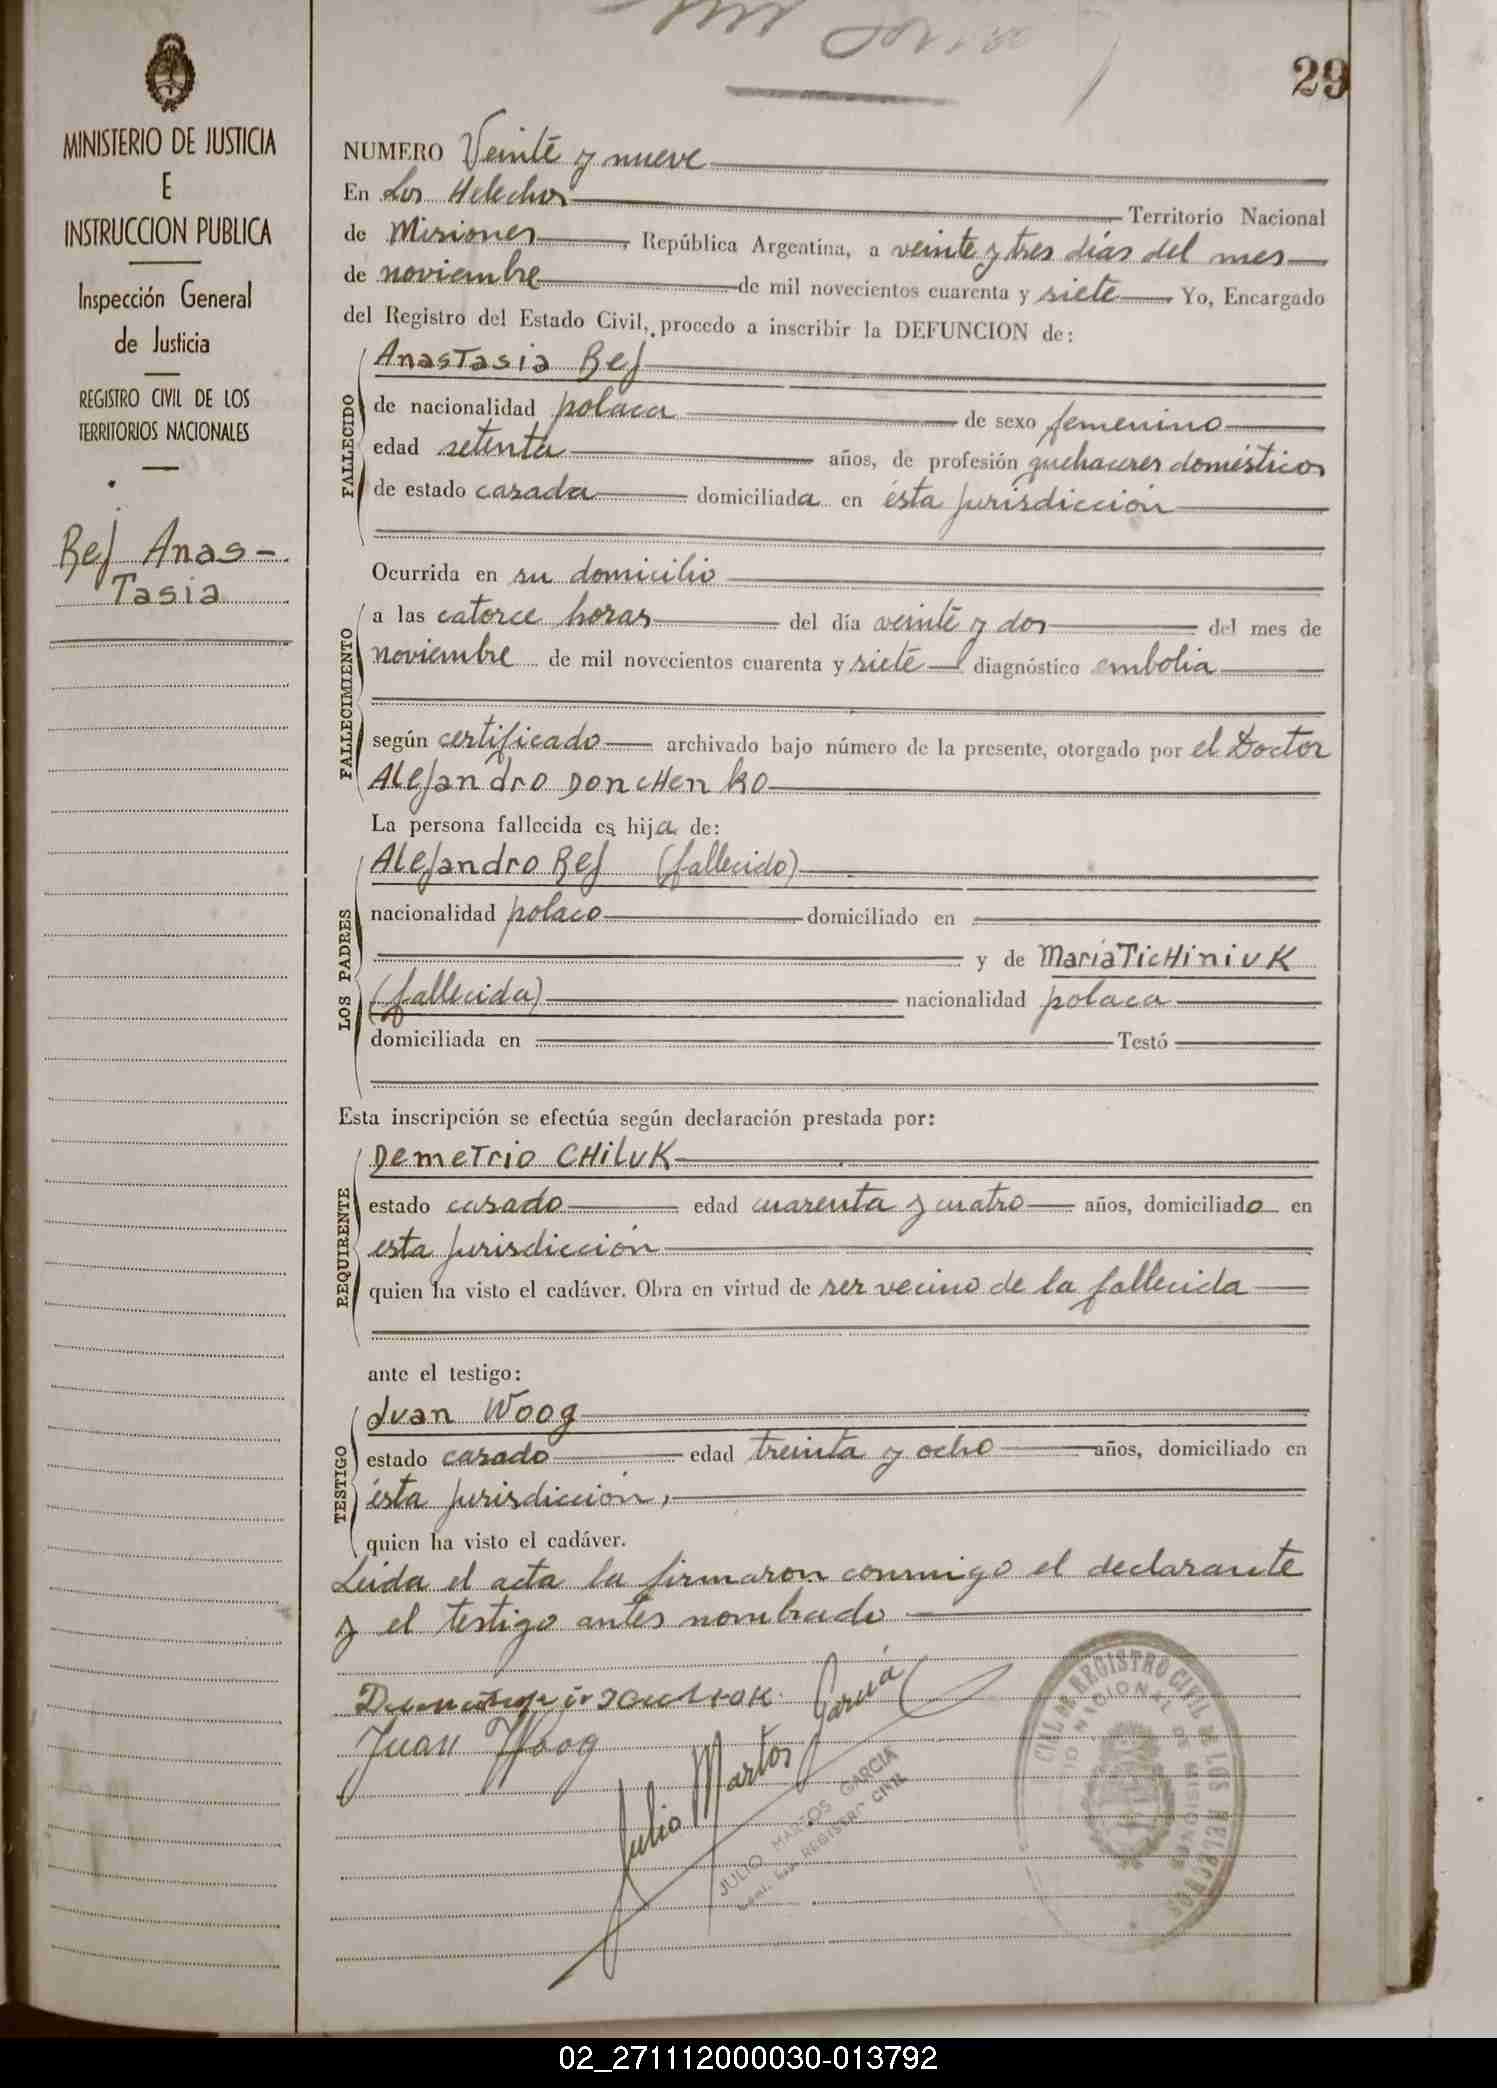 29
MINISTERIO DE JUSTICIA
E
INSTRUCCION PUBLICA
Inspección General
de Justicia
REGISTRO CIVIL DE LOS
TERRITORIOS NACIONALES
Rej Anas-
Tasia
NUMERO Veinte y nueve
En Los Helechos Territorio Nacional
de Misiones, República Argentina, a veinte y tres días del mes
de noviembre de mil novecientos cuarenta y siete Yo, Encargado
del Registro del Estado Civil, procedo a inscribir la DEFUNCION de:
FALLECIDO
Anastasia Rej
de nacionalidad polaca de sexo femenino
edad setenta años, de profesión quehaceres domésticos
de estado casada domiciliada en ésta jurisdicción
FALLECIMIENTO
Ocurrida en su domicilio
a las catorce horas del día veinte y dos del mes de
noviembre de mil novecientos cuarenta y siete diagnóstico embolia
según certificado archivado bajo número de la presente, otorgado por el Doctor
Alejandro Donchenko
La persona fallecida es hija de:
LOS PADRES
Alejandro Rej (fallecido)
nacionalidad polaco domiciliado en
y de María Tichiniuk
(fallecida) nacionalidad polaca
domiciliada en Testó
Esta inscripción se efectúa según declaración prestada por:
REQUIRENTE
Demetrio Chiluk
estado casado edad cuarenta y cuatro años, domiciliado en
esta jurisdicción
quien ha visto el cadáver. Obra en virtud de ser vecino de la fallecida
ante el testigo:
TESTIGO
Juan Woog
estado casado edad treinta y ocho años, domiciliado en
ésta jurisdicción,
quien ha visto el cadáver.
Leida el acta la firmaron conmigo el declarante
y el testigo antes nombrado
Juan Woog
Julio Martos García
JULIO MARTOS GARCIA
REGISTRO CIVIL
02_271112000030-013792